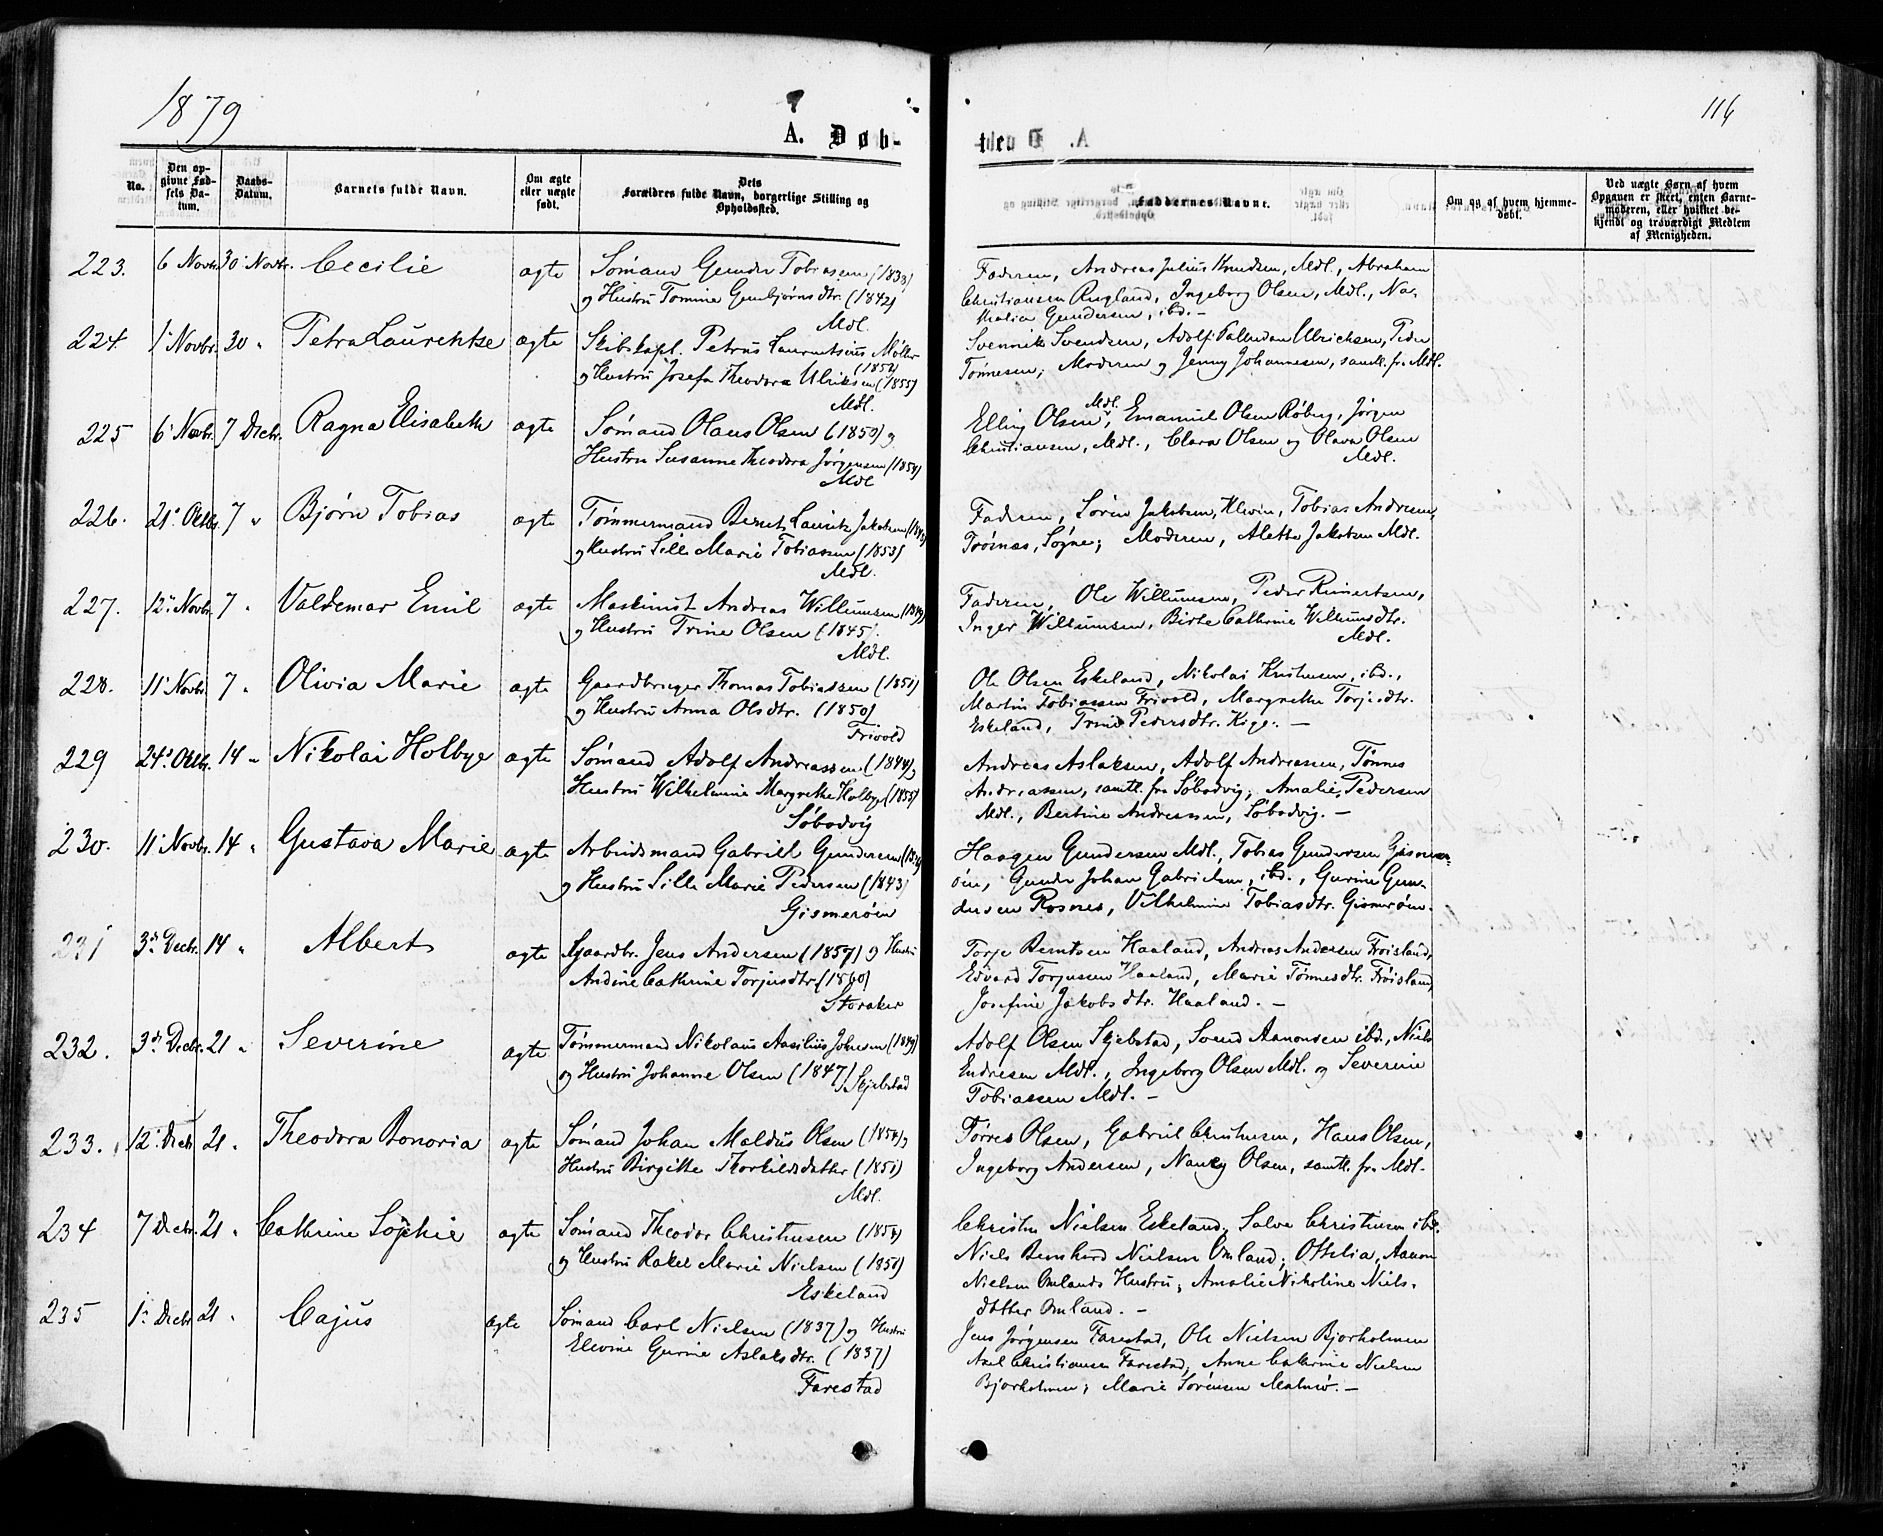 1879
A. Døb-
No.
Den op-
givne Fød-
sels Da-
tum.
Daabs-
Datum.
Barnets fulde Navn.
Om ægte
eller uægte
født.
Dets
Forældres fulde Navn, borgerlige Stilling og
Opholdssted.
223. 6 Novbr. 30 Novbr. Cecilie ægte Sømand Gunder Tobiassen (1833)
og Hustru Tomine Gunbjørnsdtr. (1842)
Mdl.
224. 1 Novbr. 30 " Petra Laurentze ægte Skibskapt. Petrus Laurentsius Møller
(1852)
og Hustru Josefa Theodora Ulriksen (1855)
Mdl.
225 6 Novbr. 7 Decbr. Ragna Elisabeth ægte Sømand Olaus Olsen (1850) og
Hustru Susanne Theodora Jørgensen (1854)
Mdl
226. 21 Oktbr. 7 " Bjørn Tobias ægte Tømmermand Bernt Lauritz Jakobsen
og Hustru Sille Marie Tobiassen (1853)
Mdl.
227. 12 Novbr. 7 " Valdemar Emil ægte Maskinist Andreas Willumsen
og Hustru Trine Olsen (1845).
Mdl.
228. 11 Novbr. 7 " Olivia Marie ægte Gaardbruger Thomas Tobiassen (1851)
og Hustru Anna Olsdtr. (1850)
Frivold
229 24 Oktbr. 14 " Nikolai Holbye ægte Sømand Adolf Andreassen (1844) og
Hustru Wilhelmine Margrethe Holbye (1855)
Søbodvig
230. 11 Novbr. 14 " Gustava Marie ægte Arbeidsmand Gabriel Gundersen
og Hustru Sille Marie Pedersen (1843)
Gismerøen
231 3 Decbr. 14 " Albert ægte Gaardbr. Jens Andersen (1857) og Hustru
Andine Cathrine Torjusdtr. (1860)
Storaker
232. 3 Decbr. 21 " Severine ægte Tømmermand Nikolaus Aasilius Johnsen (1849)
og Hustru Johanne Olsen (1847) Skjebstad
233. 12 Decbr 21 " Theodora Bonoria ægte Sømand Johan Maldus Olsen (1854) og
Hustru Birgitte Thorkildsdatter (1851)
Mdl.
234 7 Decbr. 21 " Cathrine Sophie ægte Sømand Theodor Christensen (1854)
og Hustru Rakel Marie Nielsen (1851)
Eskeland
235 1 Decbr 21 " Cajus ægte Sømand Carl Nielsen (1837) og Hustru
Elevine Gurine Aslaksdtr. (1837)
Farestad
116
te.
Faddernes Navne.
Om og af hvem hjemme-
døbt.
Ved uægte Børn af hvem
Opgaven er skeet, enten Barne-
moderen, eller hvilket be-
kjendt og troværdigt Medlem
af Menigheden.
Faderen, Andreas Julius Knudsen, Mdl., Abraham
Christiansen Rugland, Ingeborg Olsen, Mdl., Na-
thalia Gundersen, ibd. –
Svennik Svendsen, Adolf Paludan Ulrichsen, Peder
Tønnesen; Moderen og Jenny Johannesen, samtl. fr. Mdl.
Elling Olsen, Mdl. Emanuel Olsen Røberg, Jørgen
Christiansen, Mdl., Clara Olsen og Olava Olsen
Mdl.
Faderen, Søren Jakobsen, Kleven, Tobias Andresen,
Trømnæs, Søgne; Moderen, Alette Jakobsen Mdl.
Faderen, Ole Willumsen, Peder Reinertsen,
Inger Willumsen, Birte Cathrine Willumsdtr.
Mdl.
Ole Olsen Eskeland, Nikolai Knudsen, ibd.,
Martin Tobiassen Frivold, Margrethe Torjesdtr.
Eskeland, Trine Pedersdtr. Kige. –
Andreas Aslaksen, Adolf Andreassen, Tønnes
Andreassen, samtl. fra Søbodvig; Amalie Pedersen
Mdl., Bertine Andreassen, Søbodvig. –
Haagen Gundersen Mdl., Tobias Gundersen Gismer-
øen, Gunder Johan Gabrielsen, ibd., Gurine Gun-
dersen Rosnes, Vilhelmine Tobiasdtr. Gismerøen.
Torje Berntsen Haaland, Andreas Andersen Frøisland,
Edvard Torjussen Haaland, Marie Tønnesdtr. Frøisland,
Josefine Jakobsdtr. Haaland. –
Adolf Olsen Skjebstad, Svend Aanonsen ibd., Niels
Endresen Mdl., Ingeborg Olsen Mdl. og Severine
Tobiassen Mdl. –
Tørres Olsen, Gabriel Christensen, Hans Olsen,
Ingeborg Andersen, Nancy Olsen, samtl. fr. Mdl.
Christen Nielsen Eskeland, Salve Christensen ibd.
Niels Bernhard Nielsen Omland; Othelia, Aanon
Nielsen Omlands Hustru; Amalie Nikoline Niels-
datter Omland. –
Jens Jørgensen Farestad, Ole Nielsen Bjorholmen
Axel Christiansen Farestad; Anne Cathrine Nielsen
Bjorholmen; Marie Sørensen Malmø. –